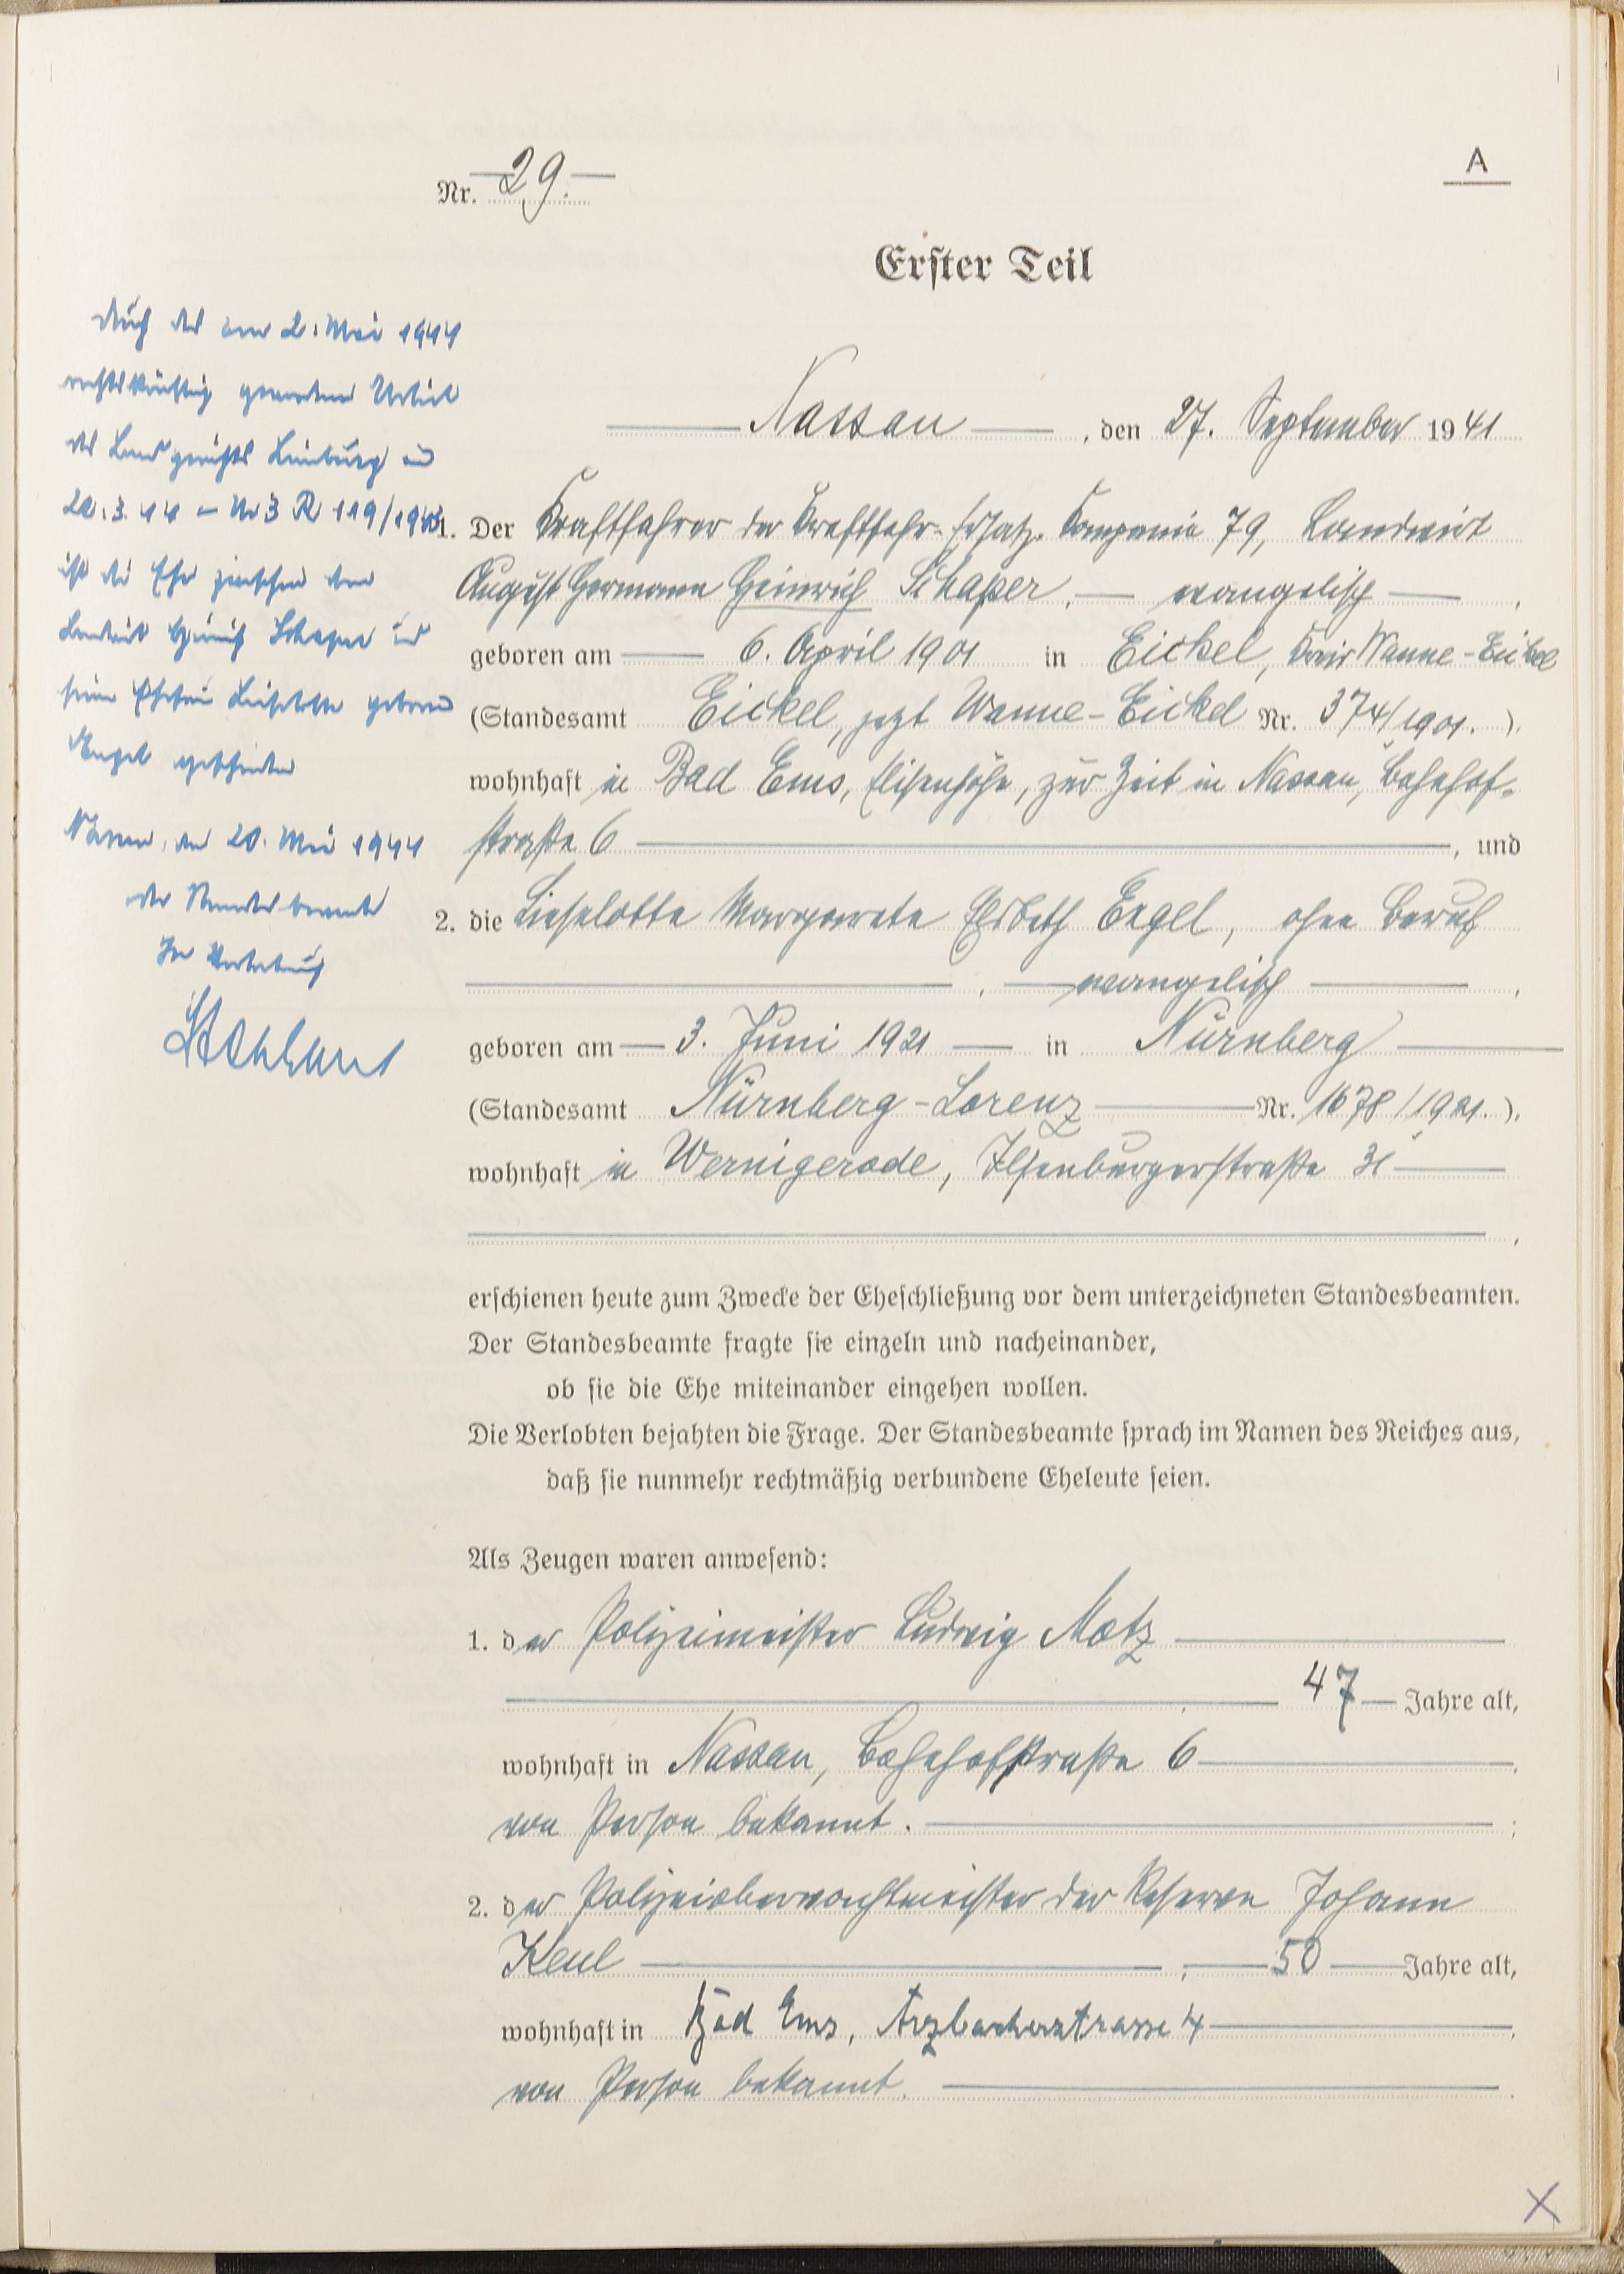 A
Nr. 29.
Erster Teil
Nassau, den 27. September 1941
1. Der Kraftfahrer der Kraftfahr-Ersatz-Kompanie 79, Landwirt
August Hermann Heinrich Schaper, evangelisch,
geboren am 6. April 1901 in Eickel, Wanne-Eickel
(Standesamt Eickel, jetzt Wanne-Eickel Nr. 374/1901.).
wohnhaft in Bad Ems, Elisenhöhe, zur Zeit in Nassau, Bahnhof-
straße 6, und
2. die Lieselotte Margarete Elsbeth Engel, ohne Beruf
, evangelisch,
geboren am 3. Juni 1921 in Nürnberg
(Standesamt Nürnberg-Lorenz Nr. 1678/1921.).
wohnhaft in Wernigerode, Ilsenburgerstraße 31
,
erschienen heute zum Zwecke der Eheschließung vor dem unterzeichneten Standesbeamten.
Der Standesbeamte fragte sie einzeln und nacheinander,
ob sie die Ehe miteinander eingehen wollen.
Die Verlobten bejahten die Frage. Der Standesbeamte sprach im Namen des Reiches aus,
daß sie nunmehr rechtmäßig verbundene Eheleute seien.
Als Zeugen waren anwesend:
1. der Polizeimeister Ludwig Motz
, 47 Jahre alt,
wohnhaft in Nassau, Bahnhofstraße 6,
von Person bekannt. ;
2. der Polizeioberwachtmeister der Reserve Johann
Keul, 50 Jahre alt,
wohnhaft in Bad Ems, Arzbacherstrasse 4,
von Person bekannt.
Durch das am 2. Mai 1944
rechtskräftig gewordene Urteil
des Landgerichts Limburg
20.3.44 – 3 R 119/1943
ist die Ehe zwischen dem
Landwirt Heinrich Schaper und
seiner Ehefrau Lieselotte geborene
Engel geschieden
Nassau, den 20. Mai 1944
Der Standesbeamte
In Vertretung
X